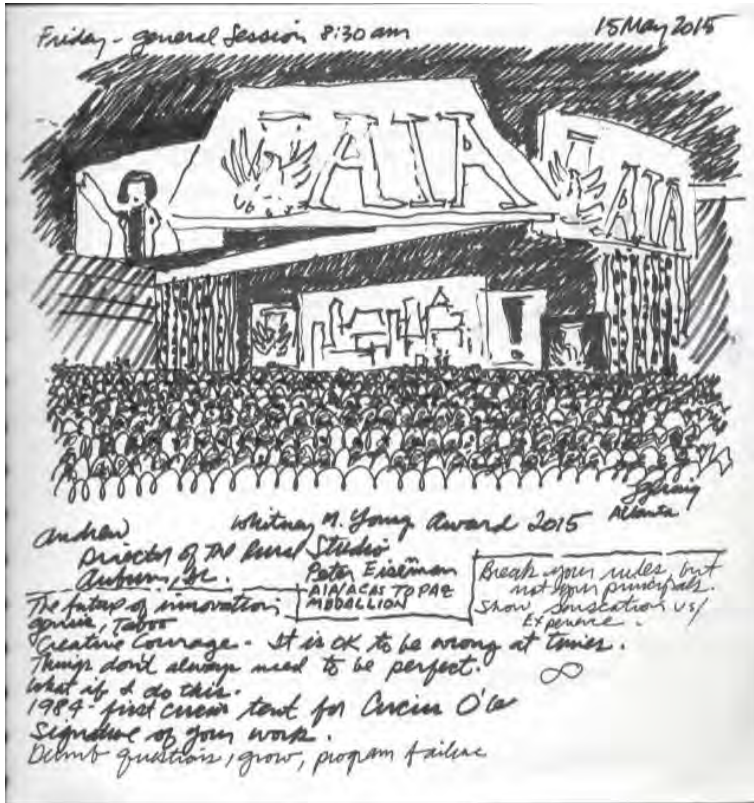 Friday - general Session 8:30 am
15 May 2015
AIA
AIA
Atlanta
Whitney M. Young Award 2015
Andrew
Director of The Rural Studio
Auburn,
Peter Eisenman
AIA/ACAS TOPAZ
MEDALLION
Break your rules, but
not your principals.
Show vs/
Experience.
The future of innovation,
genius, Taboo
Creative Courage - It is OK to be wrong at times.
Things don't always need to be perfect.
What if I do this.
1984 - first circus tent for Circus O'le
Signature of your work.
Dumb questions, grow, program failure